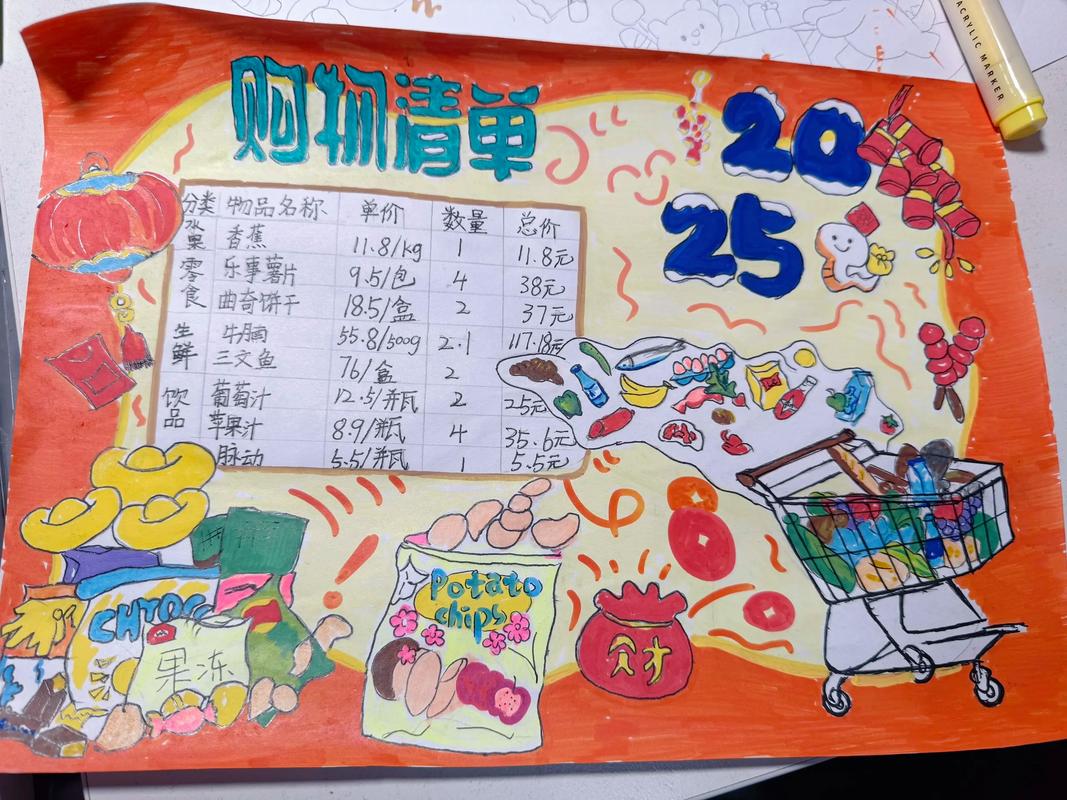 ACRYLIC MARKER
购物清单
20
25
分类 物品名称 单价 数量 总价
水果 香蕉 11.8/kg 1 11.8元
零食 乐事薯片 9.5/包 4 38元
曲奇饼干 18.5/盒 2 37元
生鲜 牛腩 55.8/500g 2.1 117.18元
三文鱼 76/盒 2
饮品 葡萄汁 12.5/瓶 2 25元
苹果汁 8.9/瓶 4 35.6元
脉动 5.5/瓶 1 5.5元
Potato
chips
果冻
财